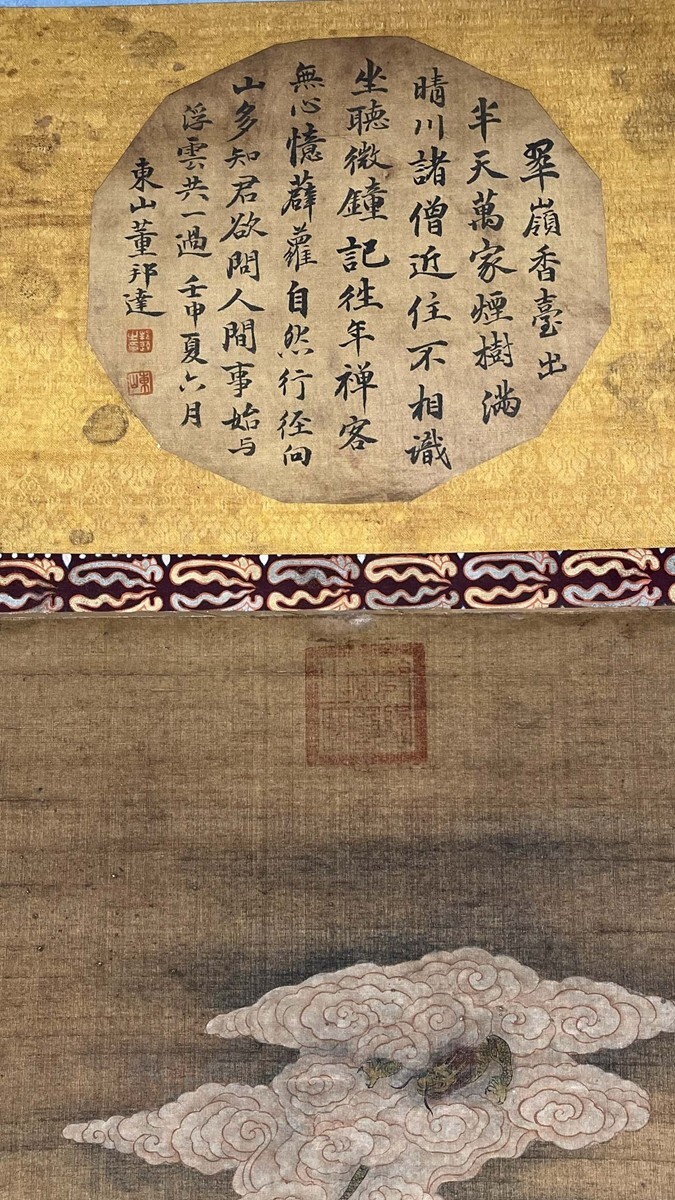 翠嶺香臺出
半天萬家煙樹滿
晴川諸僧近住不相識
坐聽微鐘記往年禅客
無心憶薜蘿自然行徑向
山多知君欲問人間事始与
浮雲共一過 壬申夏六月
東山董邦達
東山